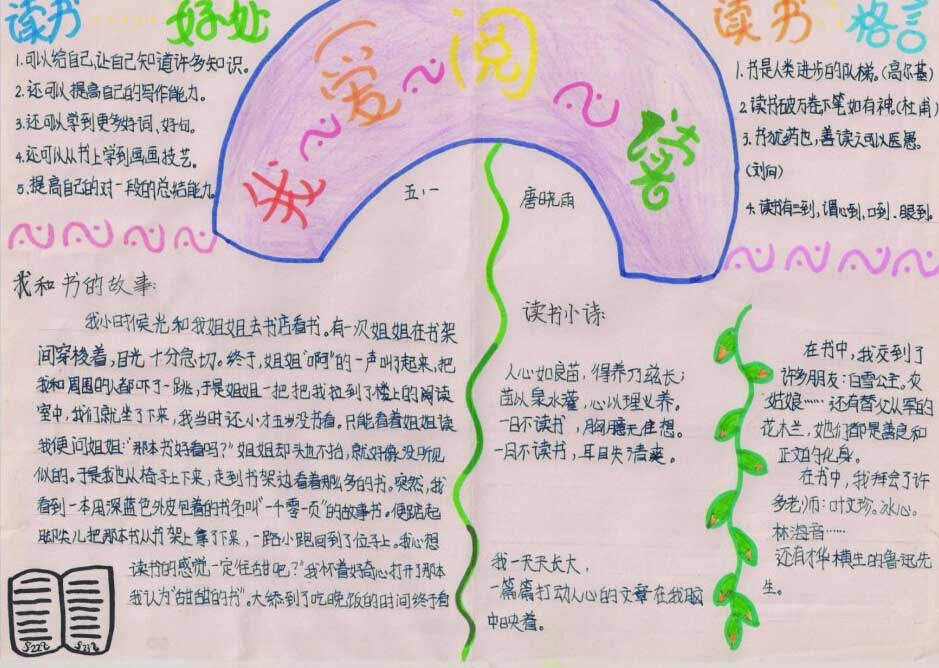 读书
好处
1.可以给自己,让自己知道许多知识。
2.还可以提高自己的写作能力。
3.还可以学到更多好词、好句。
4.还可以从书上学到画画技艺。
5.提高自己的对一段的总结能力
我爱阅读
五·一
唐晓雨
读书
格言
1.书是人类进步的队梯。(高尔基)
2.读书破万卷下笔如有神。(杜甫)
3.书犹药也,善读之可以医愚。
(刘向)
4.读书有三到,谓心到,口到、眼到。
我和书的故事:
我小时候光和我姐姐去书店看书。有一次姐姐在书架
间穿梭着,目光十分急切。终于,姐姐"啊"的一声叫了起来,把
我和周围的人都吓了一跳,于是姐姐一把把我拉到了楼上的阅读
室中,我们就坐了下来,我当时还小才五岁没书看,只能看着姐姐读
我便问姐姐:"那本书好看吗?"姐姐却头也不抬,就好像没听见
似的。于是我也从椅子上下来,走到书架边看着那么多的书。突然,我
看到一本用深蓝色外皮包着的书名叫"一千零一页"的故事书。便踮起
脚尖儿把那本书从书架上拿了下来,一路小跑回到了位子上。我心想
读书的感觉一定往甜吧?"我怀着好奇心打开了那本
我认为"甜甜的书"。大概到了吃晚饭的时间终于看
读书小诗:
人心如良苗,得养乃滋长;
苗以泉水灌,心以理义养。
一日不读书,胸臆无佳想。
一月不读书,耳目失清爽。
我一天天长大,
一篇篇打动人心的文章在我脑
中映着。
在书中,我交到了
许多朋友:白雪公主。灰
姑娘……还有替父从军的
花木兰,她们都是善良和
正义的化身。
在书中,我拜会了许
多老师:叶文玲。冰心。
林海音……
还有才华横生的鲁迅先
生。